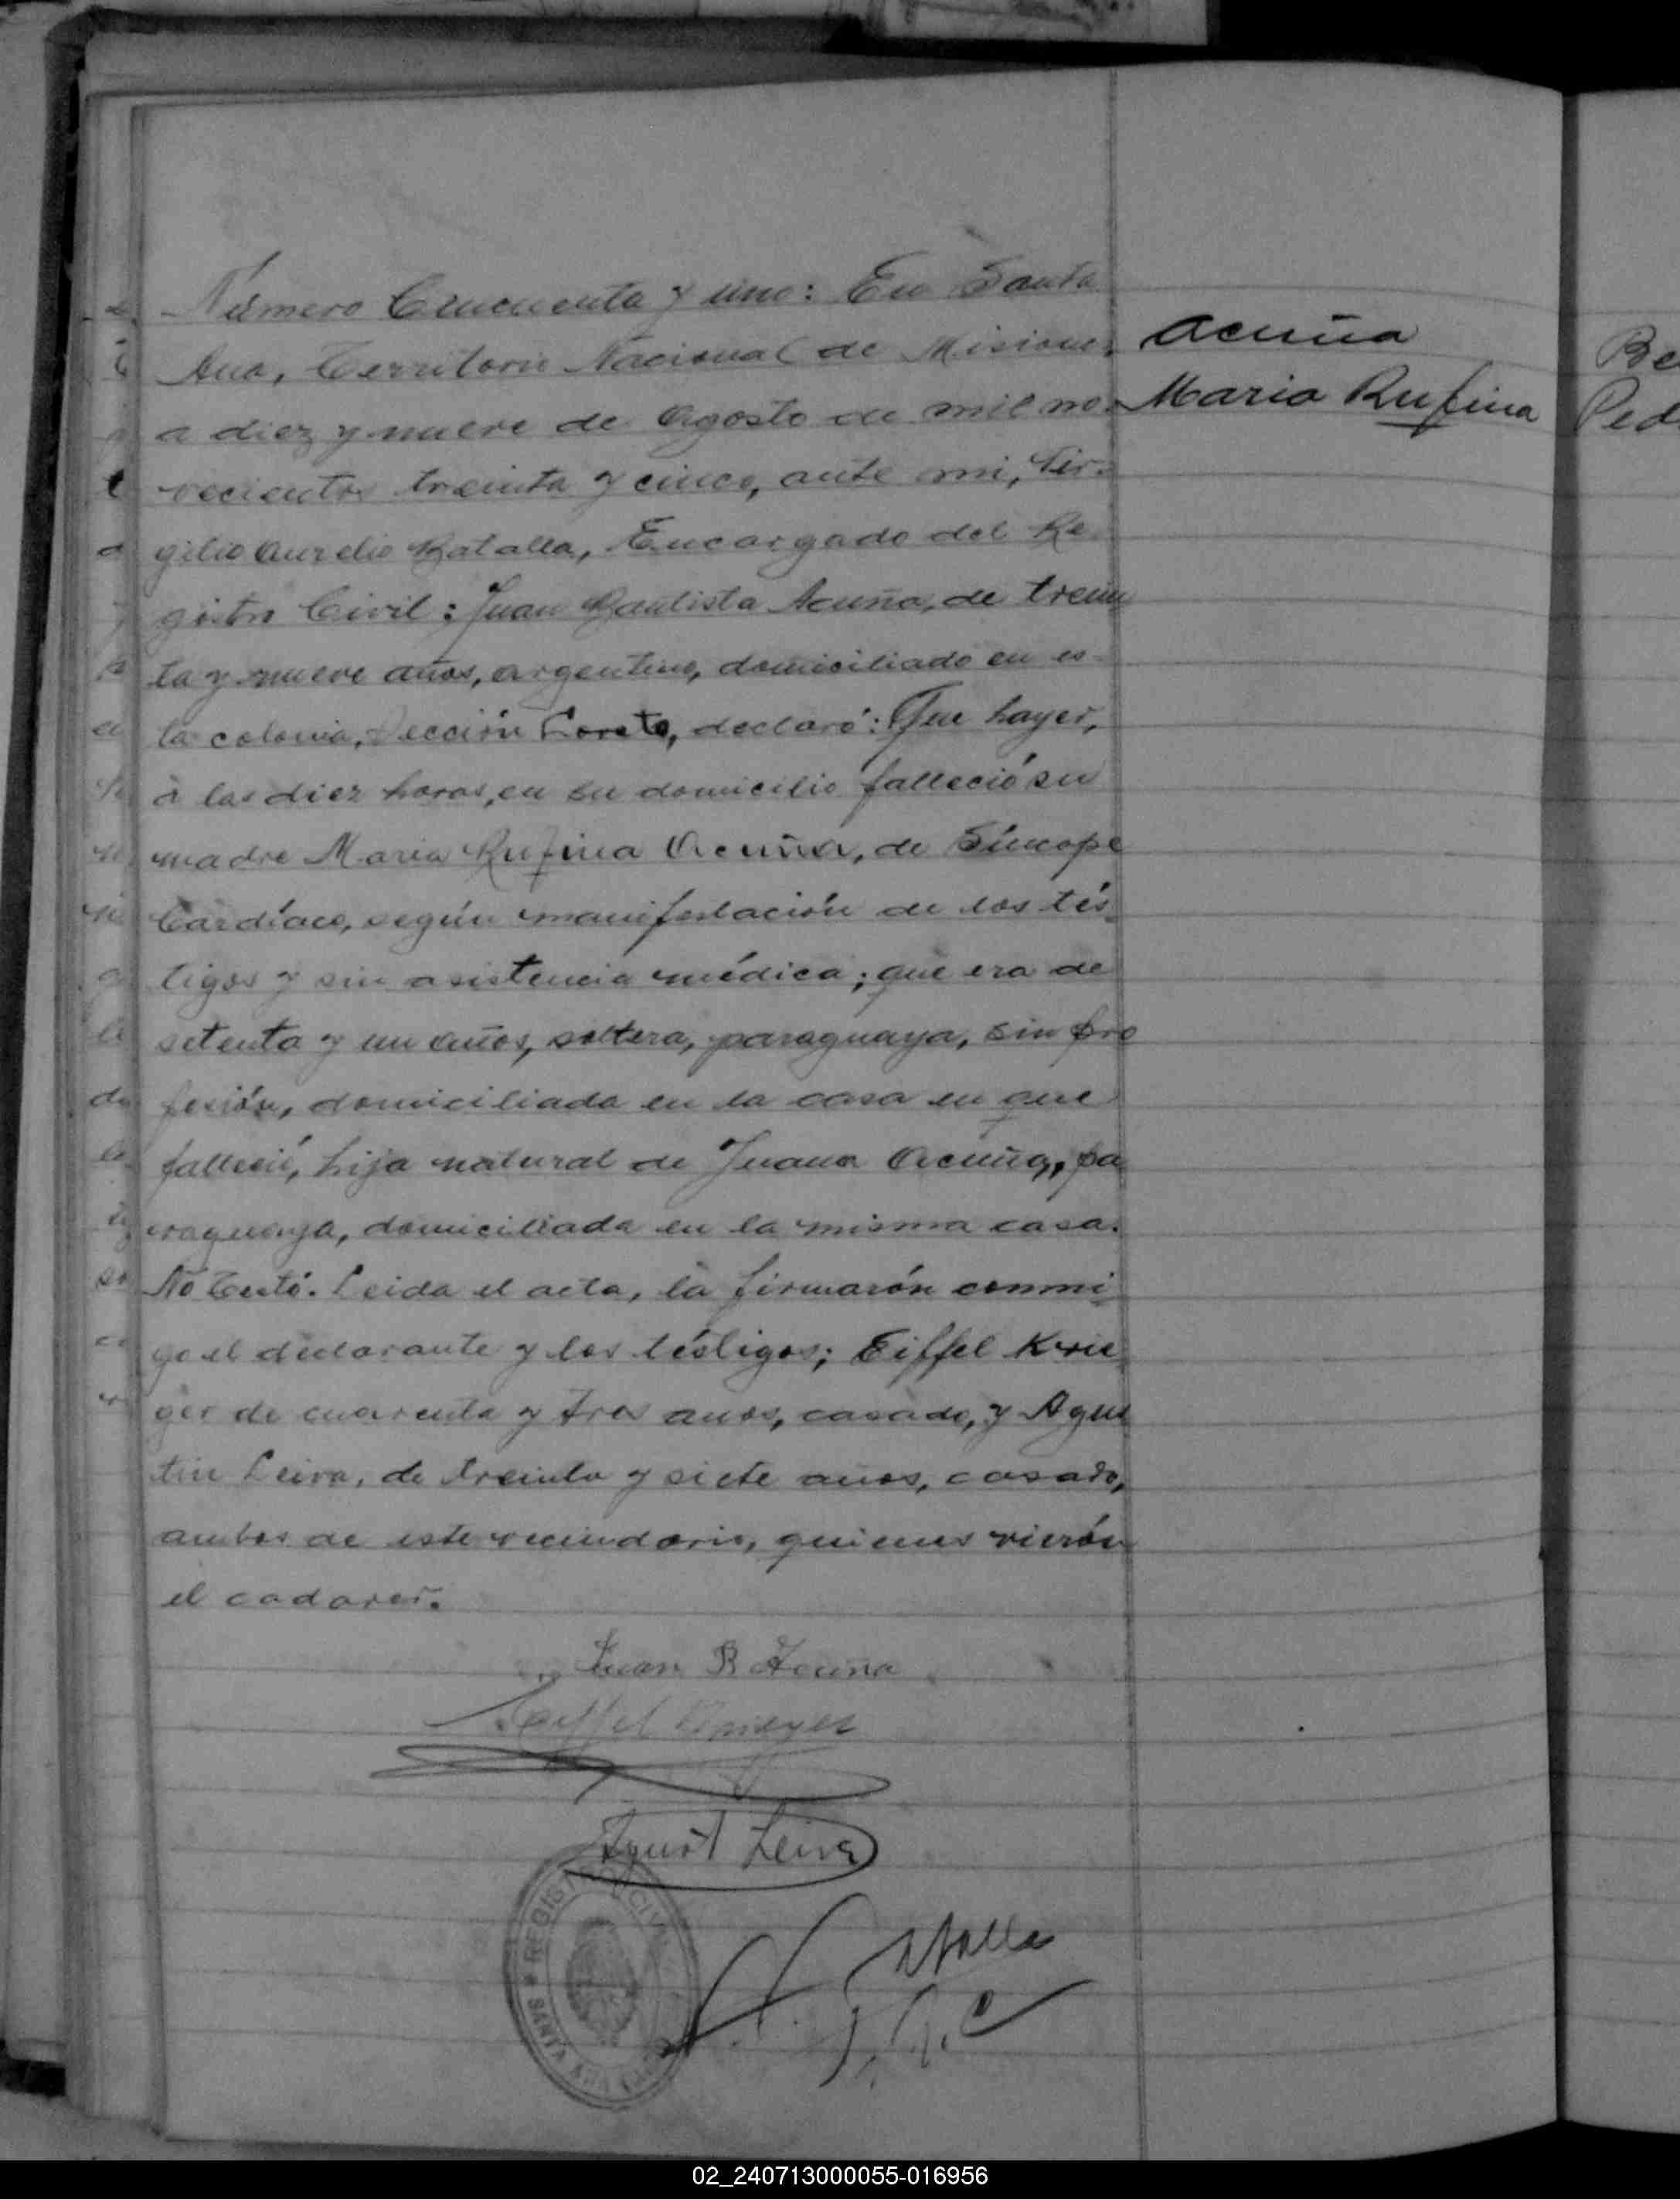 Número Cincuenta y uno: En Santa
Ana, Territorio Nacional de Misiones,
a diez y nueve de Agosto de mil no-
vecientos treinta y cinco, ante mi, Vir-
gilio Aurelio Batalla, Encargado del Re-
gistro Civil: Juan Bautista Acuña, de trein
ta y nueve años, argentino, domiciliado en es-
ta colonia, Sección Loreto, declaró: Que hayer,
á las diez horas, en su domicilio falleció su
madre Maria Rufina Acuña, de Síncope
Cardíaco, según manifestación de los tés-
tigos y sin asistencia médica; que era de
setenta y un años, soltera, paraguaya, sin pro
fesión, domiciliada en la casa en que
falleció, hija natural de Juana Acuña, pa
raguaya, domiciliada en la misma casa.
No Testó. Leida el acta, la firmarón conmi-
go el declarante y los téstigos; Eiffel Krie-
ger de cuarenta y tres años, casado, y Agus
tin Leiva, de treinta y siete años, casado,
ambos de este vecindario, quienes vierón
el cadaver.
Acuña
Maria Rufina
Juan B Acuña
Eiffel Krieger
Agust Leiva
REGISTRO CIVIL
SANTA ANA
Batalla
Be
Ped
02_240713000055-016956